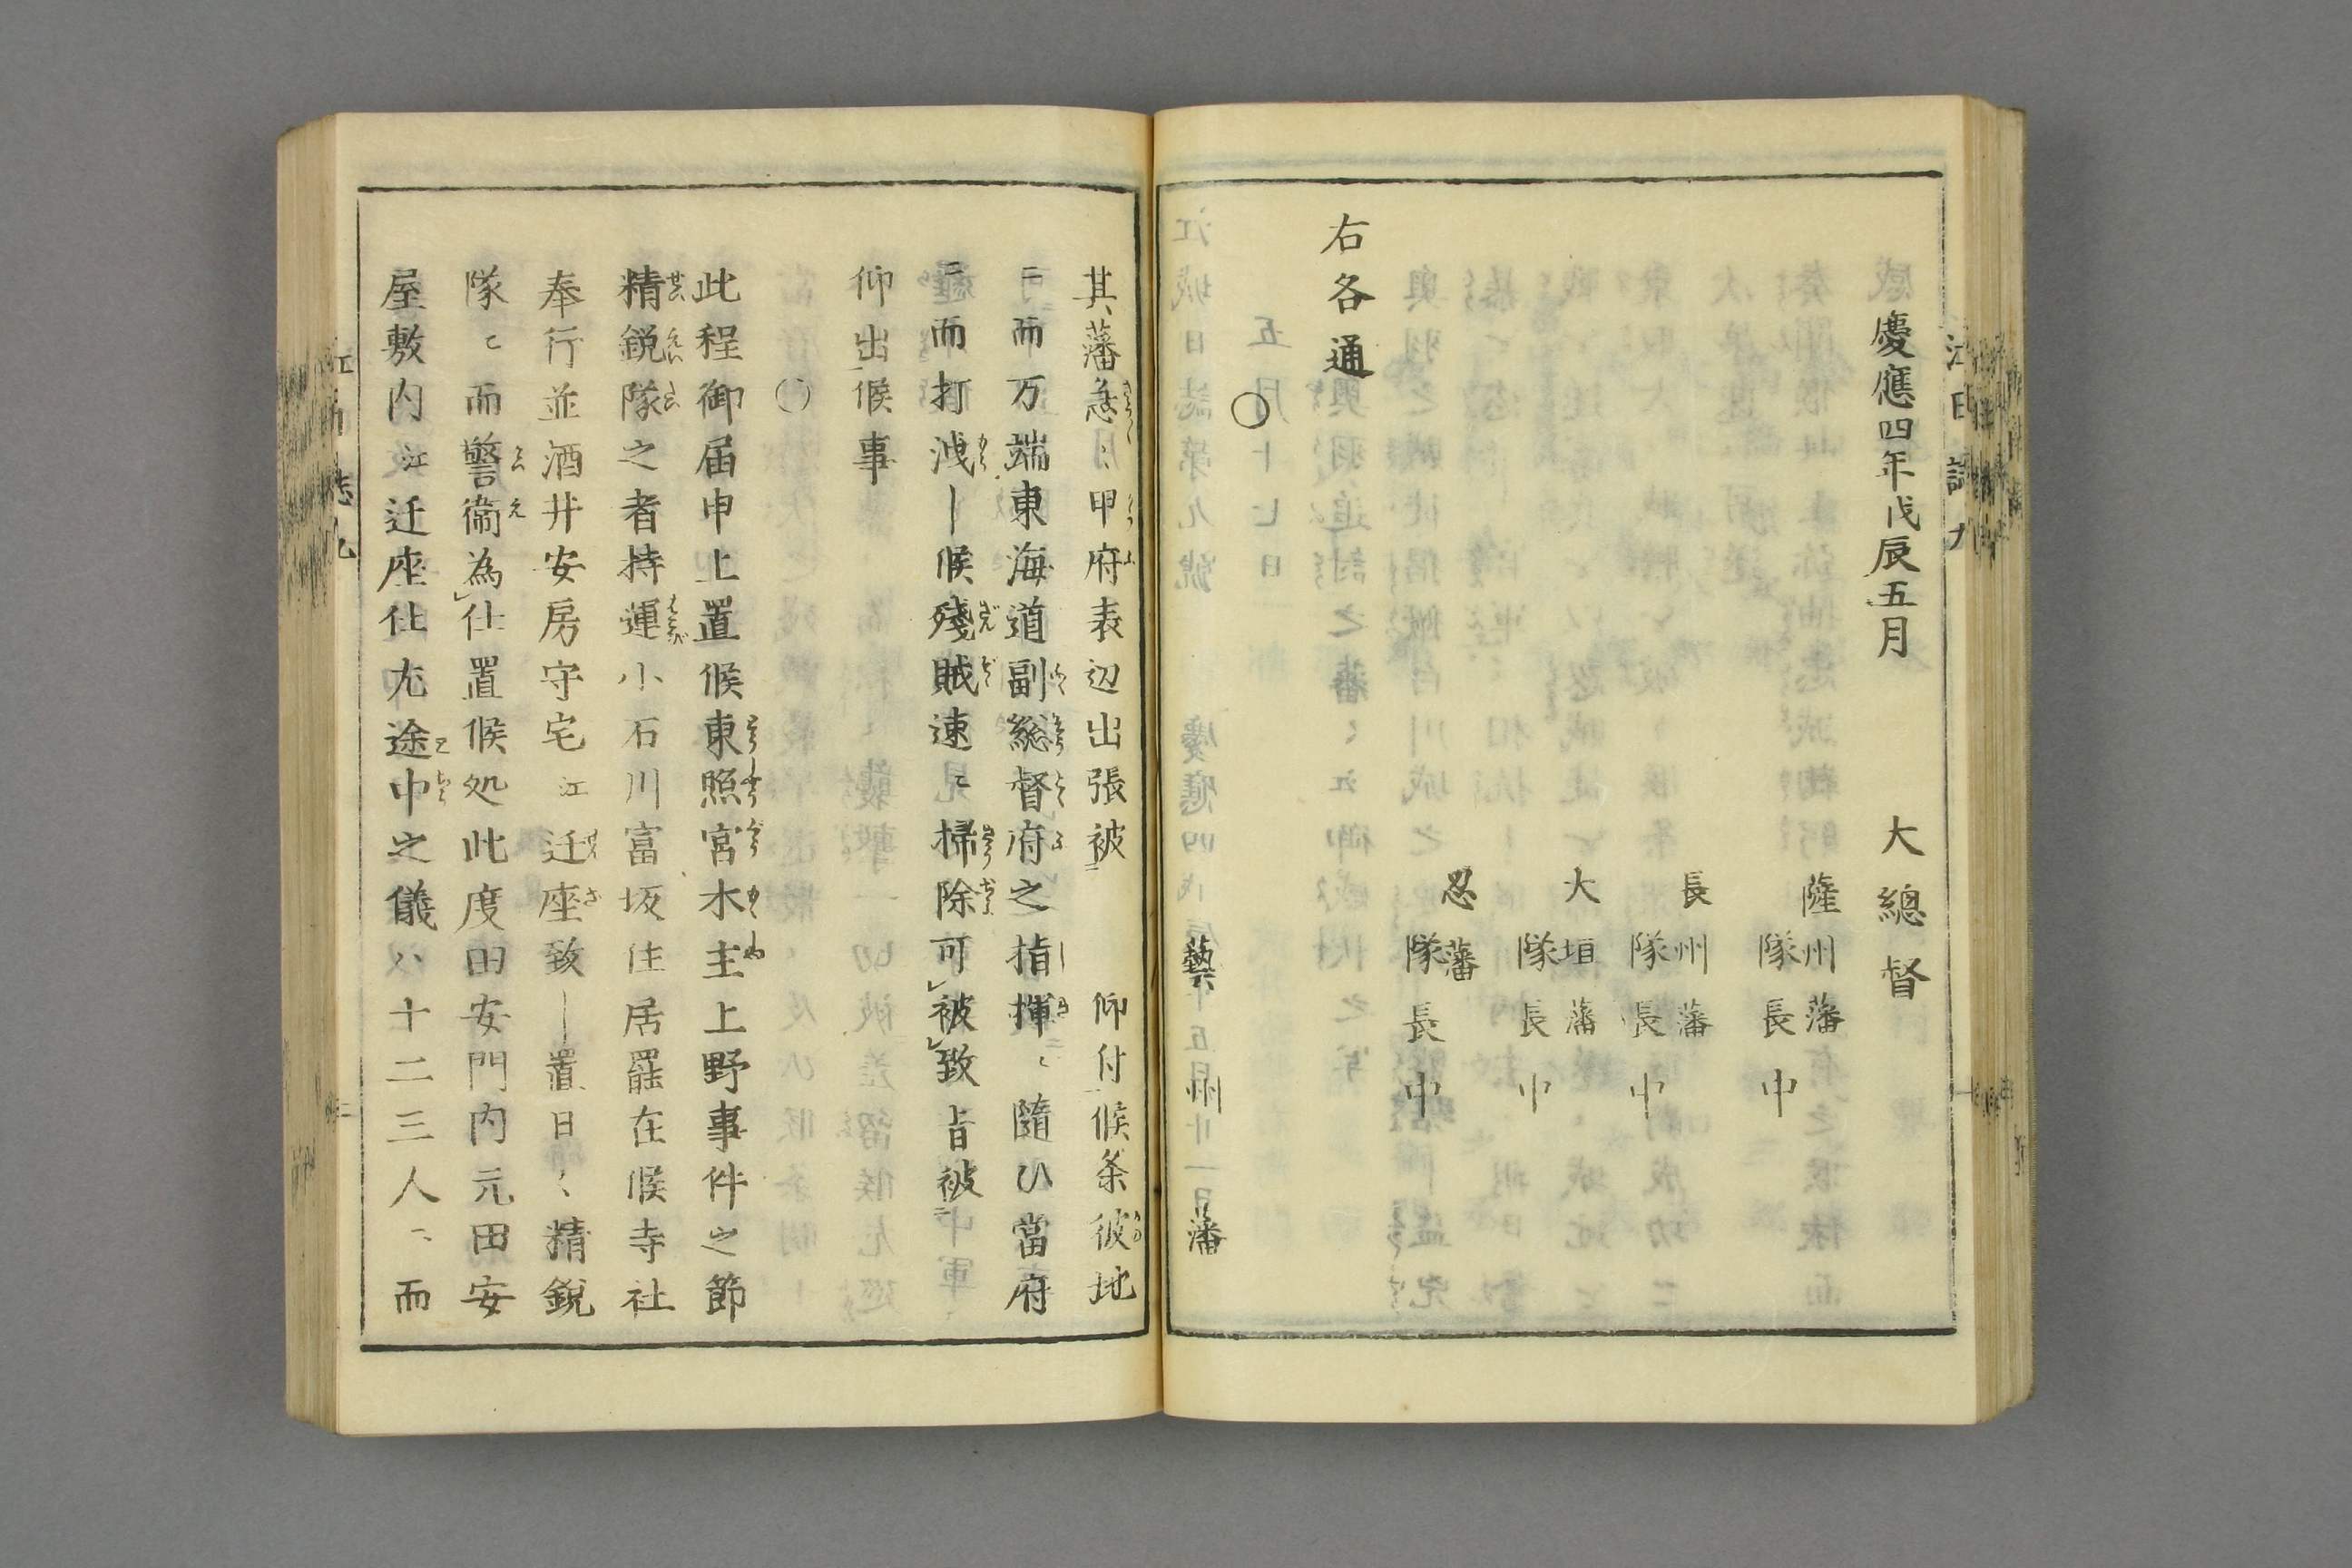 慶應四年戊辰五月
大總督
薩州藩
隊長中
長州藩
隊長中
大垣藩
隊長中
忍藩
隊長中
右各通
○
藝州藩
其藩急々甲府表辺出張被 仰付候条彼地
ニ而万端東海道副総督府之指揮ニ隨ひ當府
ニ而打洩し候殘賊速ニ掃除可被致旨被
仰出候事
○
此程御届申上置候東照宮木主上野事件之節
精鋭隊之者持運小石川富坂住居罷在候寺社
奉行並酒井安房守宅江迁座致し置日々精鋭
隊ニ而警衞為仕置候処此度田安門内元田安
屋敷内江迁座仕尤途中之儀ハ十二三人ニ而